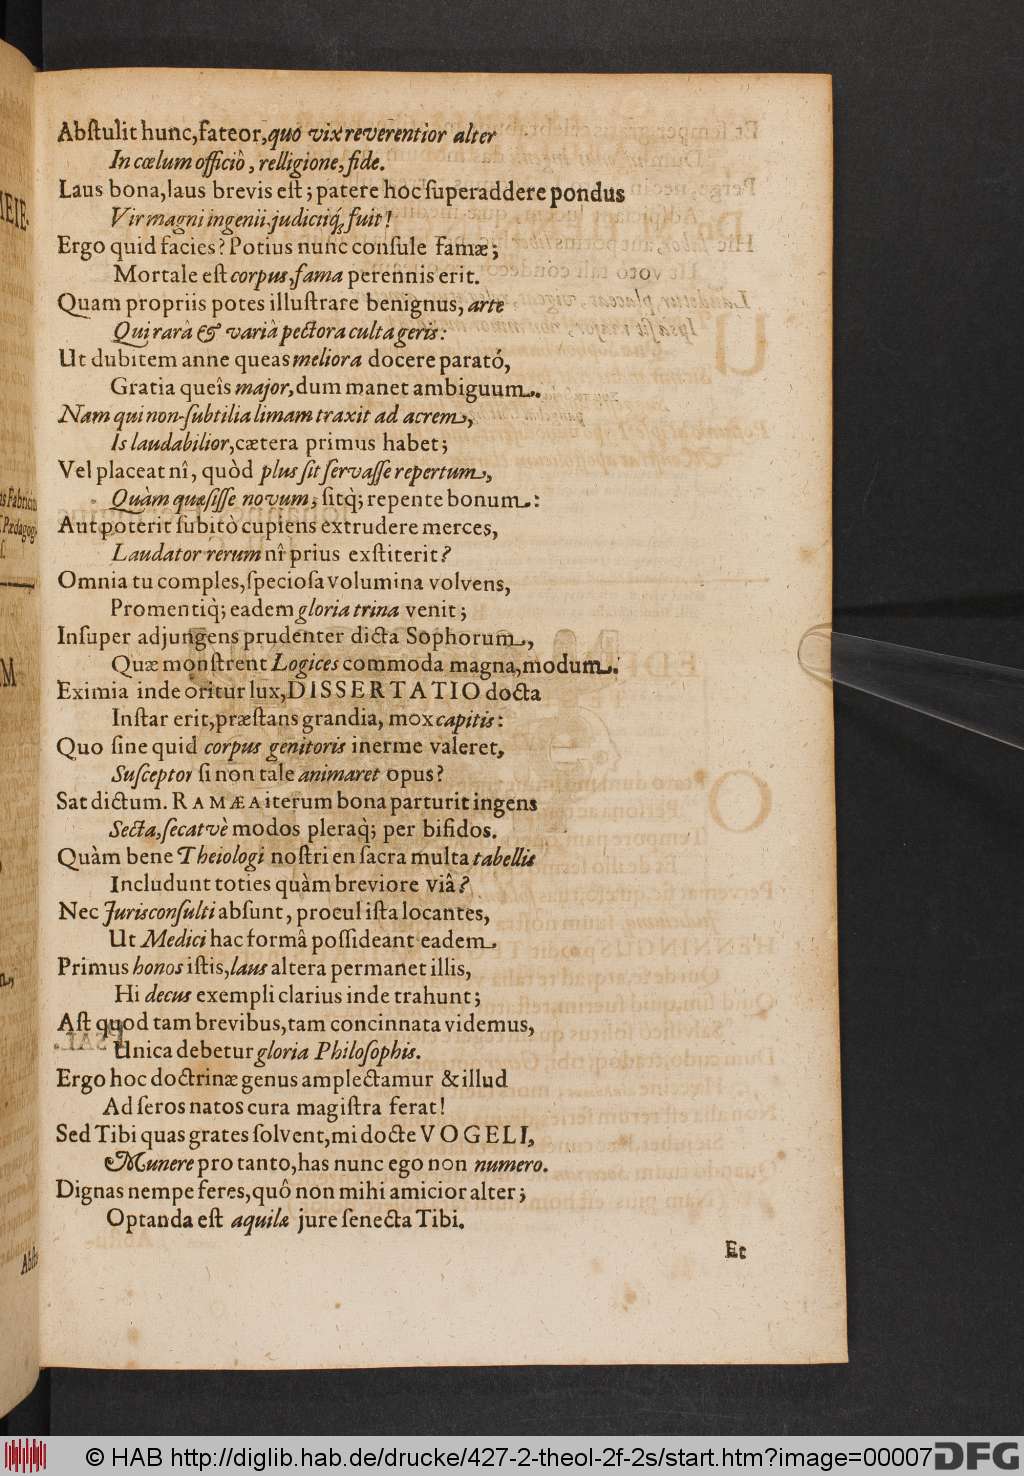 Abſtulit hunc, fateor, quo vix reverentior alter
In cœlum officiô, relligione, fide.
Laus bona, laus brevis eſt; patere hoc ſuperaddere pondus
Vir magni ingenii judictiq́; fuit!
Ergo quid facies? Potius nunc conſule famæ;
Mortale eſt corpus, fama perennis erit.
Quam propriis potes illuſtrare benignus, arte
Qui rarâ & variâ pectora culta geris:
Ut dubitem anne queas meliora docere parató,
Gratia queîs major, dum manet ambiguum.
Nam qui non-ſubtilia limam traxit ad acrem,
Is laudabilior, cætera primus habet;
Vel placeat nî, quòd plus ſit ſervaſſe repertum,
Quàm quæſiſſe novum, ſitq́; repente bonum:
Aut poterit ſubitò cupiens extrudere merces,
Laudator rerum nî prius exſtiterit?
Omnia tu comples, ſpecioſa volumina volvens,
Promentiq́; eadem gloria trina venit;
Inſuper adjungens prudenter dicta Sophorum,
Quæ monſtrent Logices commoda magna, modum.
Eximia inde oritur lux, DISSERTATIO docta
Inſtar erit, præſtans grandia, mox capitis:
Quo ſine quid corpus genitoris inerme valeret,
Susceptor ſi non tale animaret opus?
Sat dictum. RAMÆA iterum bona parturit ingens
Secta, ſecat vè modos pleraq́; per bifidos.
Quàm bene Theiologi noſtri en ſacra multa tabellis
Includunt toties quàm breviore viâ?
Nec Jurisconſulti abſunt, procul iſta locantes,
Ut Medici hac formâ poſſideant eadem.
Primus honos iſtis, laus altera permanet illis,
Hi decus exempli clarius inde trahunt;
Aſt quod tam brevibus, tam concinnata videmus,
Unica debetur gloria Philoſophis.
Ergo hoc doctrinæ genus amplectamur & illud
Ad ſeros natos cura magiſtra ferat!
Sed Tibi quas grates ſolvent, mi docte VOGELI,
Munere pro tanto, has nunc ego non numero.
Dignas nempe feres, quô non mihi amicior alter;
Optanda eſt aquilæ jure ſenecta Tibi.
Et
© HAB http://diglib.hab.de/drucke/427-2-theol-2f-2s/start.htm?image=00007
DFG